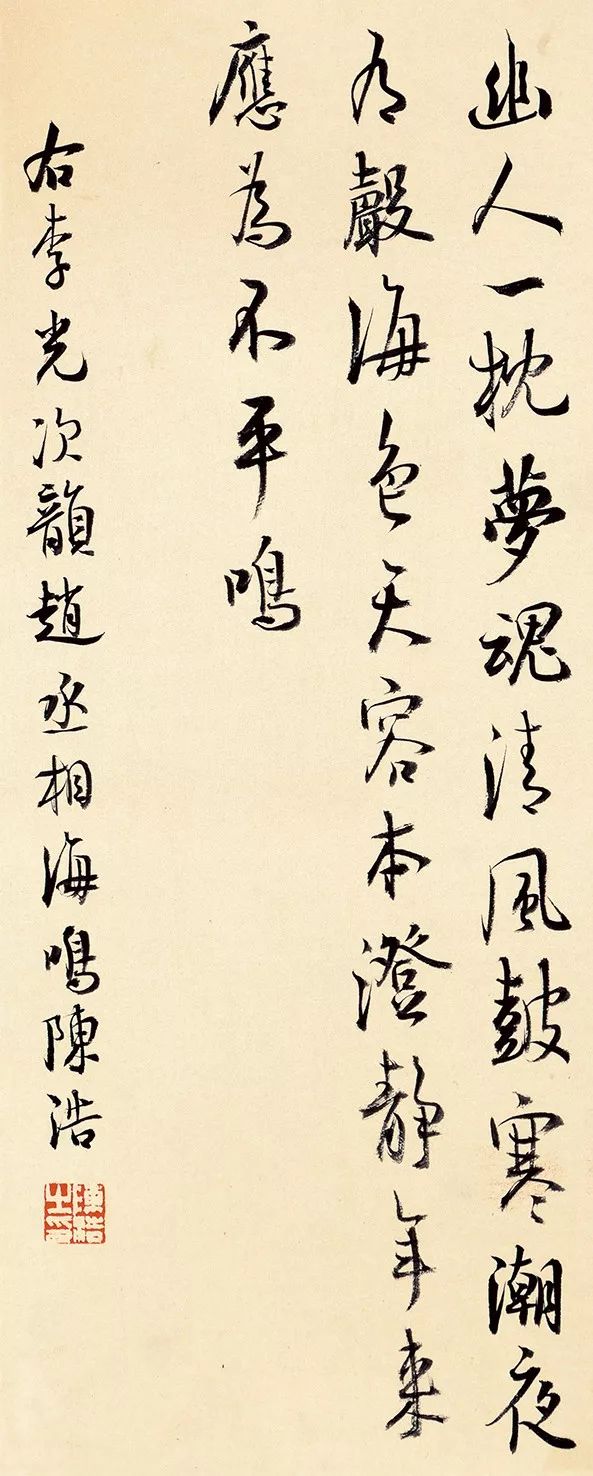 幽人一枕夢魂清風鼓寒潮夜
有聲海色天容本澄静年来
應為不平鳴
右李光次韻趙丞相海鳴陳浩
陳浩之印